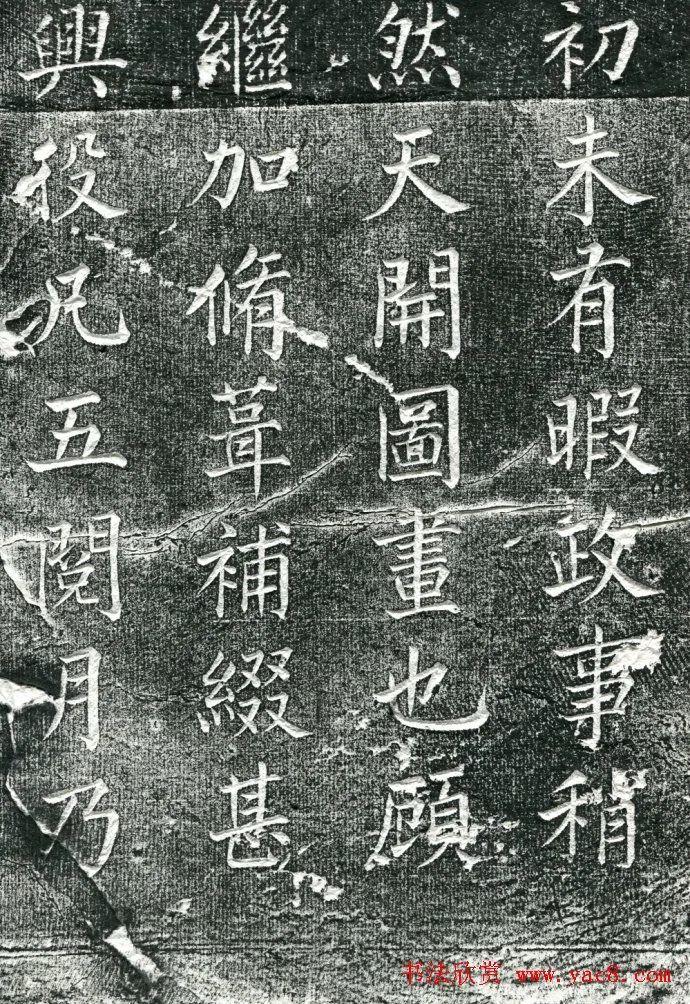 初未有暇政事稍
然天開圖畫也顧
繼加脩葺補綴甚
興役凡五閱月乃
书法欣赏 www.yac8.com